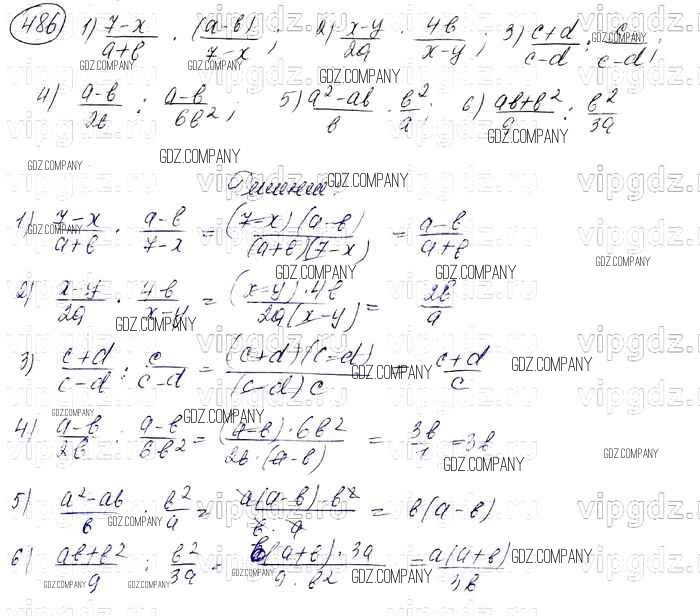 486) 1) (7-x)/(a+b) · (a-b)/(7-x); 2) (x-y)/2a · 4b/(x-y); 3) (c+d)/(c-d) : c/(c-d);
4) (a-b)/2b : (a-b)/6b²; 5) (a²-ab)/b · b²/a; 6) (ab+b²)/9 : b²/3a
Решение:
1) (7-x)/(a+b) · (a-b)/(7-x) = (7-x)(a-b)/(a+b)(7-x) = (a-b)/(a+b)
2) (x-y)/2a · 4b/(x-y) = (x-y)·4b/2a(x-y) = 2b/a
3) (c+d)/(c-d) : c/(c-d) = (c+d)(c-d)/(c-d)c = (c+d)/c
4) (a-b)/2b : (a-b)/6b² = (a-b)·6b²/2b·(a-b) = 3b/1 = 3b
5) (a²-ab)/b · b²/a = a(a-b)·b²/b·a = b(a-b)
6) (ab+b²)/9 : b²/3a = b(a+b)·3a/9·b² = a(a+b)/3b
GDZ.COMPANY
vipgdz.ru